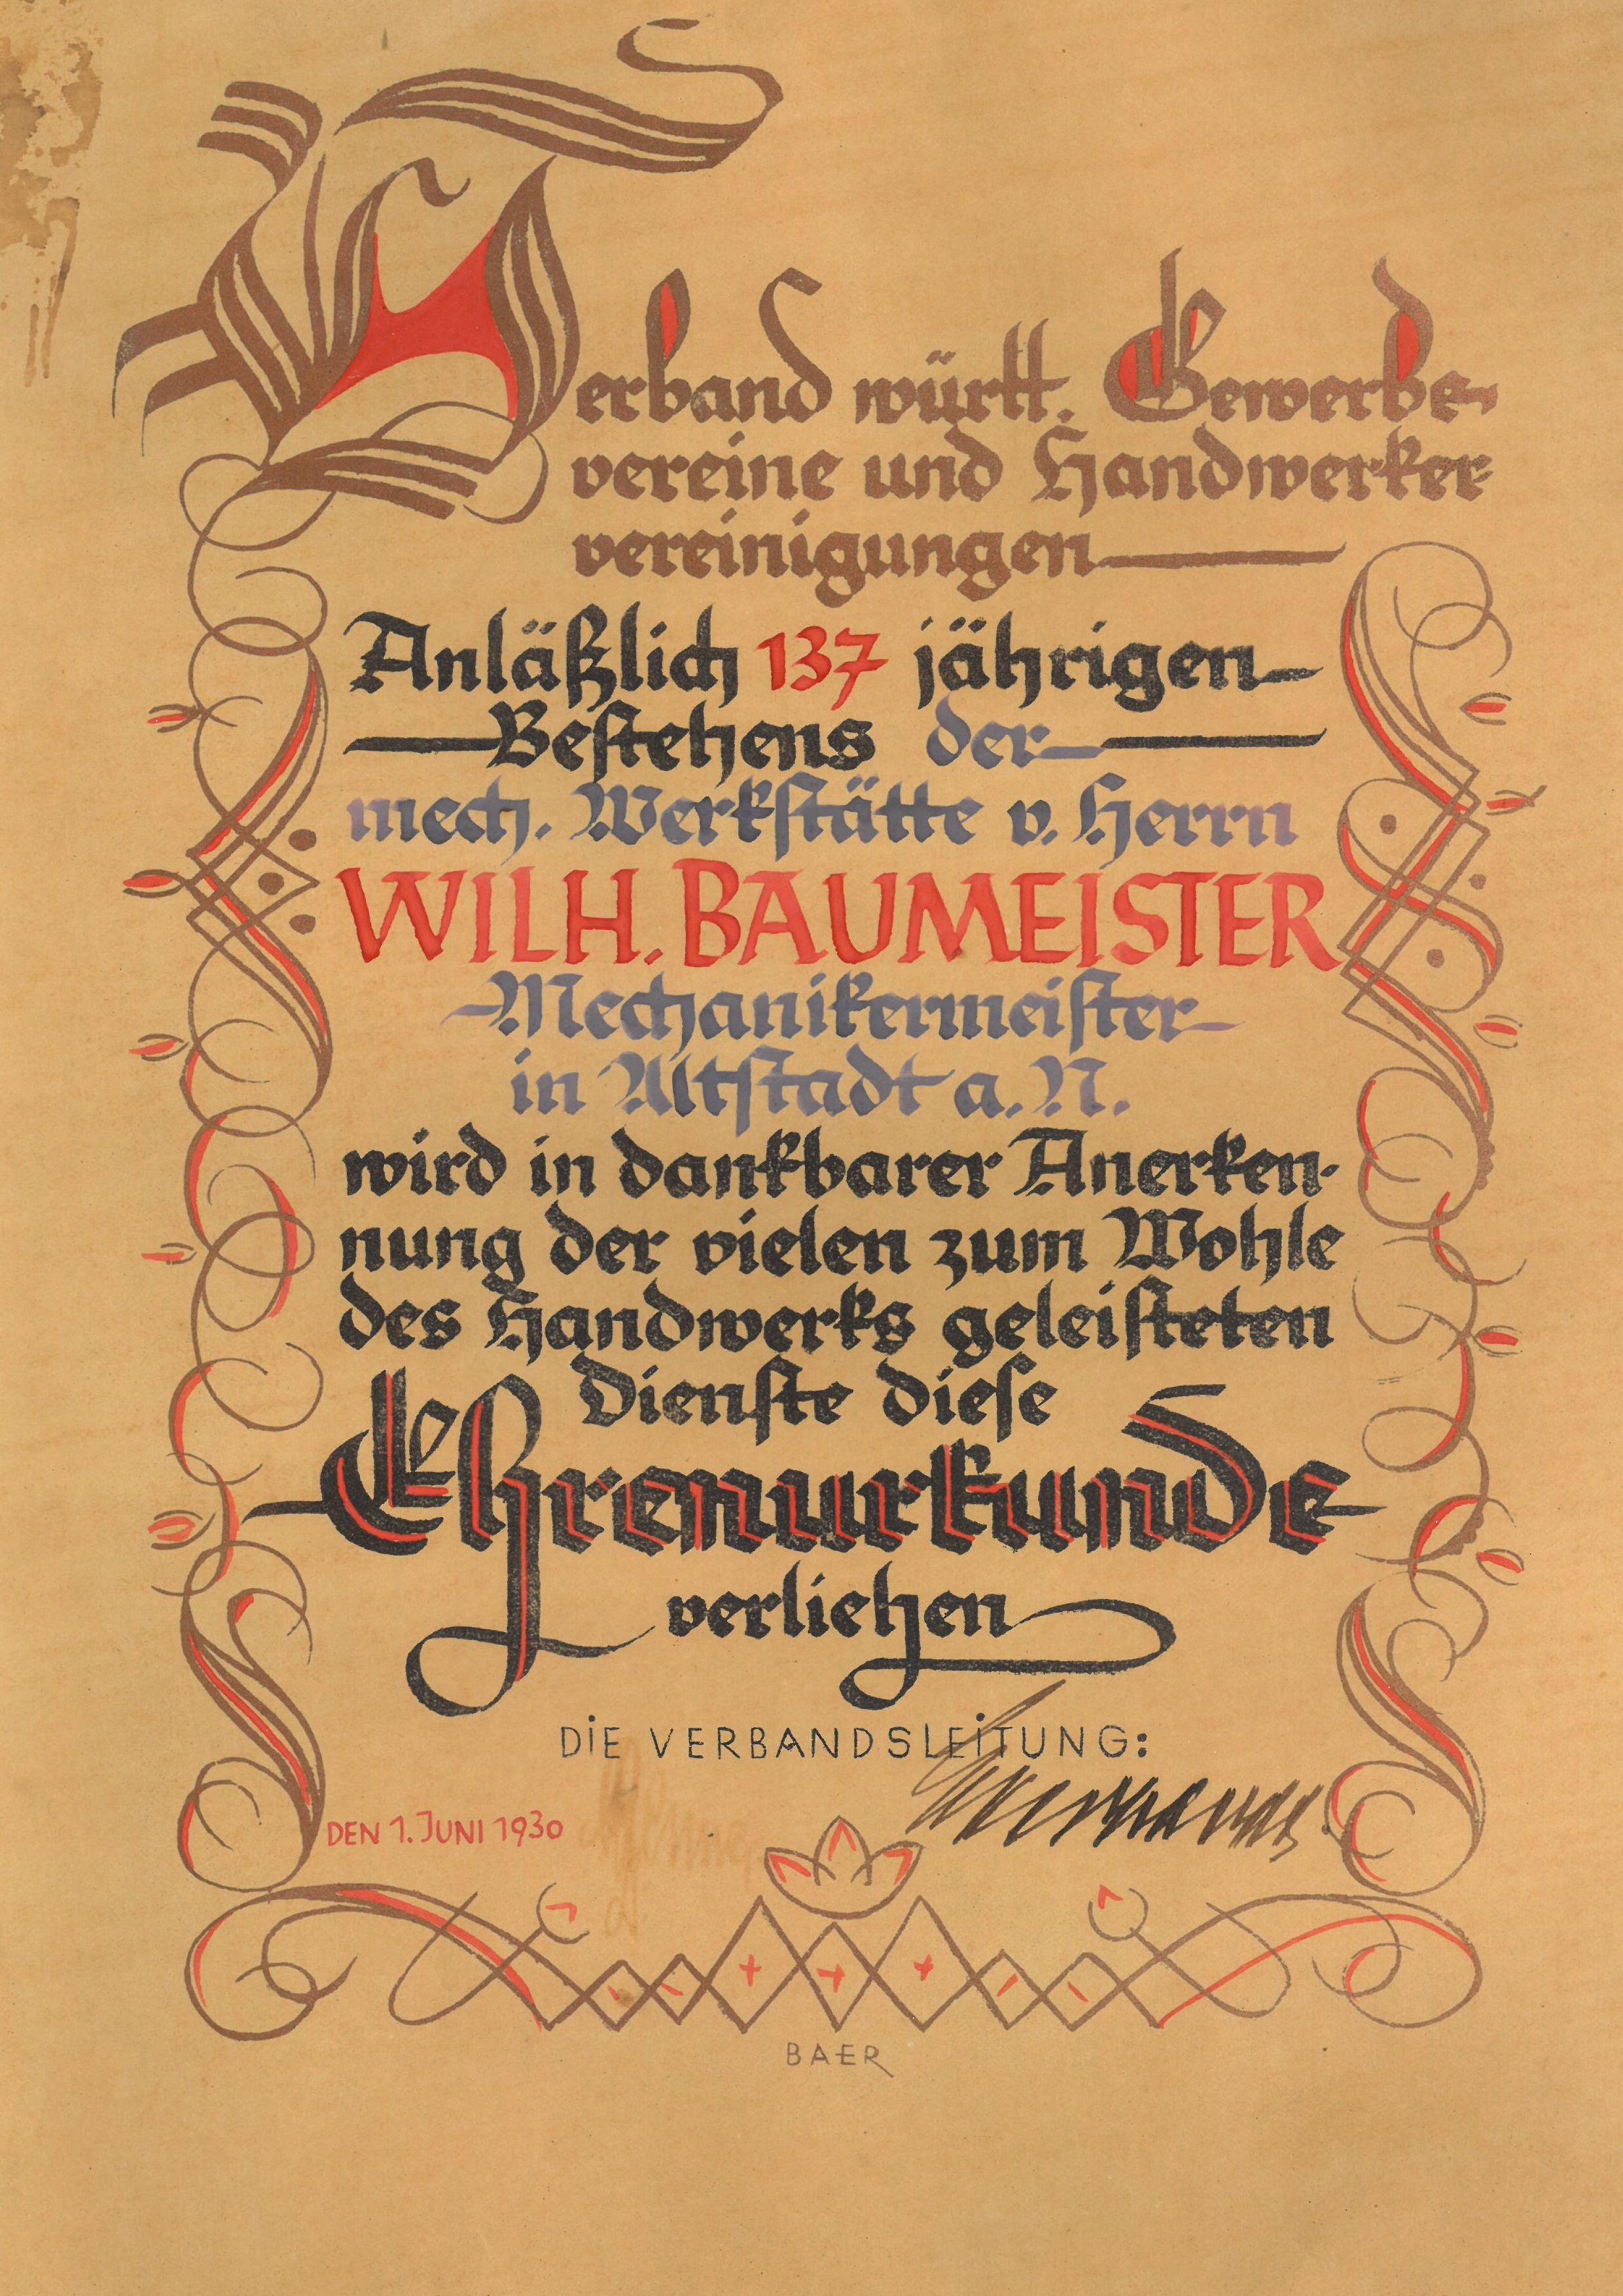 Verband württ. Gewerbe-
vereine und Handwerker-
vereinigungen
Anläßlich 137 jährigen
Bestehens der
mech. Werkstätte v. Herrn
WILH. BAUMEISTER
Mechanikermeister
in Altstadt a. N.
wird in dankbarer Anerken-
nung der vielen zum Wohle
des Handwerks geleisteten
Dienste diese
Ehrenurkunde
verliehen
DIE VERBANDSLEITUNG:
DEN 1. JUNI 1930
BAER